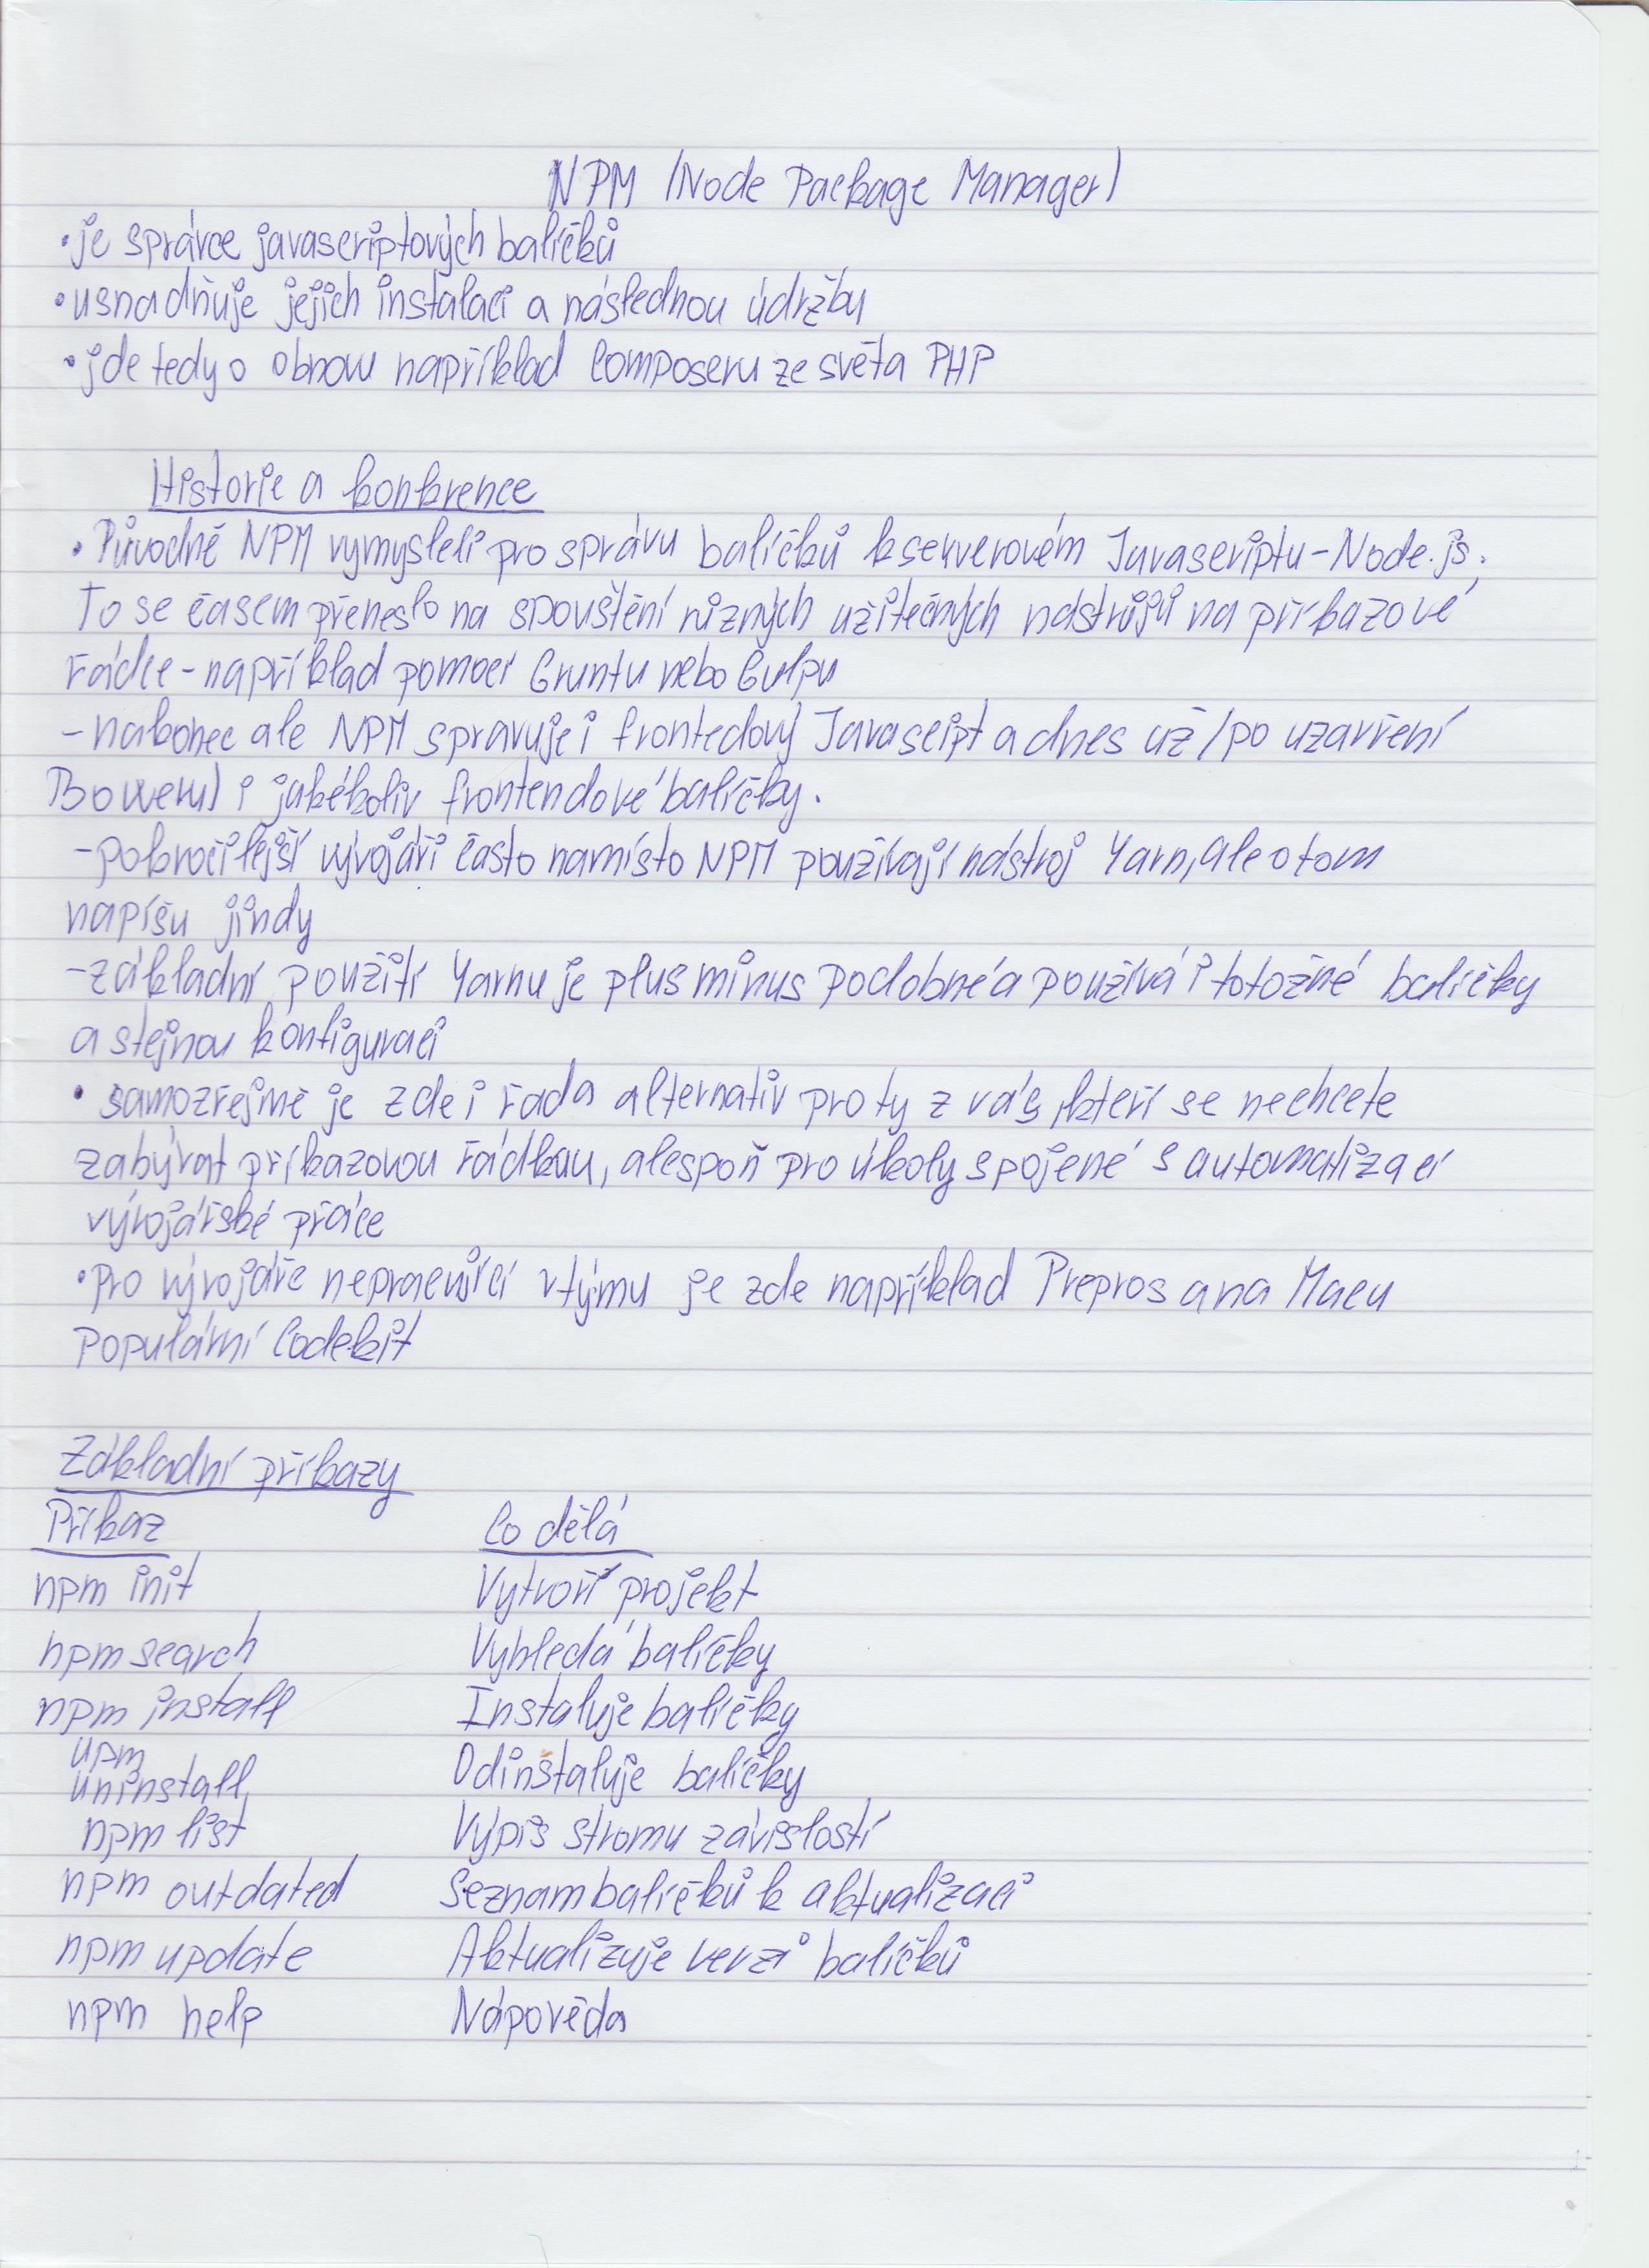 NPM (Node Package Manager)
• je správce javascriptových balíčků
• usnadňuje jejich instalaci a následnou údržbu
• jde tedy o obnovu například Composeru ze světa PHP
Historie a konkrence
• Původně NPM vymysleli pro správu balíčků k serverovém Javascriptu - Node.js.
To se časem přeneslo na spouštění různých užitečných nástrojů na příkazové
řádce - například pomocí Gruntu nebo Gulpu
- nakonec ale NPM spravuje i frontedový Javascipt a dnes už (po uzavření
Boweru) i jakékoliv frontendové balíčky.
- pokročilejší vývojáři často namísto NPM používají nástroj Yarn, ale o tom
napíšu jindy
- základní použití Yarnu je plus mínus podobné a používá i totožné balíčky
a stejnou konfiguraci
• samozřejmě je zde i řada alternativ pro ty z vás, kteří se nechcete
zabývat příkazovou řádkou, alespoň pro úkoly spojené s automatizací
vývojářské práce
• pro vývojáře nepracující v týmu je zde například Prepros a na Macu
populární Codekit
Základní příkazy
Příkaz Co dělá
npm init Vytvoří projekt
npm search Vyhledá balíčky
npm install Instaluje balíčky
npm
uninstall Odinštaluje balíčky
npm list Výpis stromu závislostí
npm outdated Seznam balíčků k aktualizaci
npm update Aktualizuje verzi balíčků
npm help Nápověda